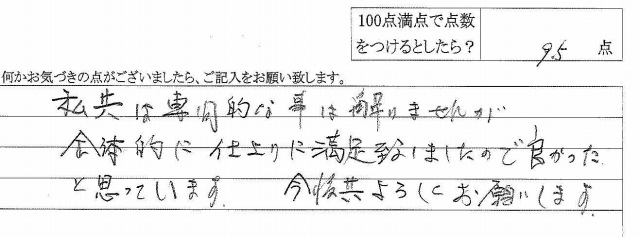 100点満点で点数
をつけるとしたら？
95 点
何かお気づきの点がございましたら、ご記入をお願い致します。
私共は専門的な事は解りませんが
全体的に仕上りに満足致しましたので良かった
と思っています。 今後共よろしくお願いします